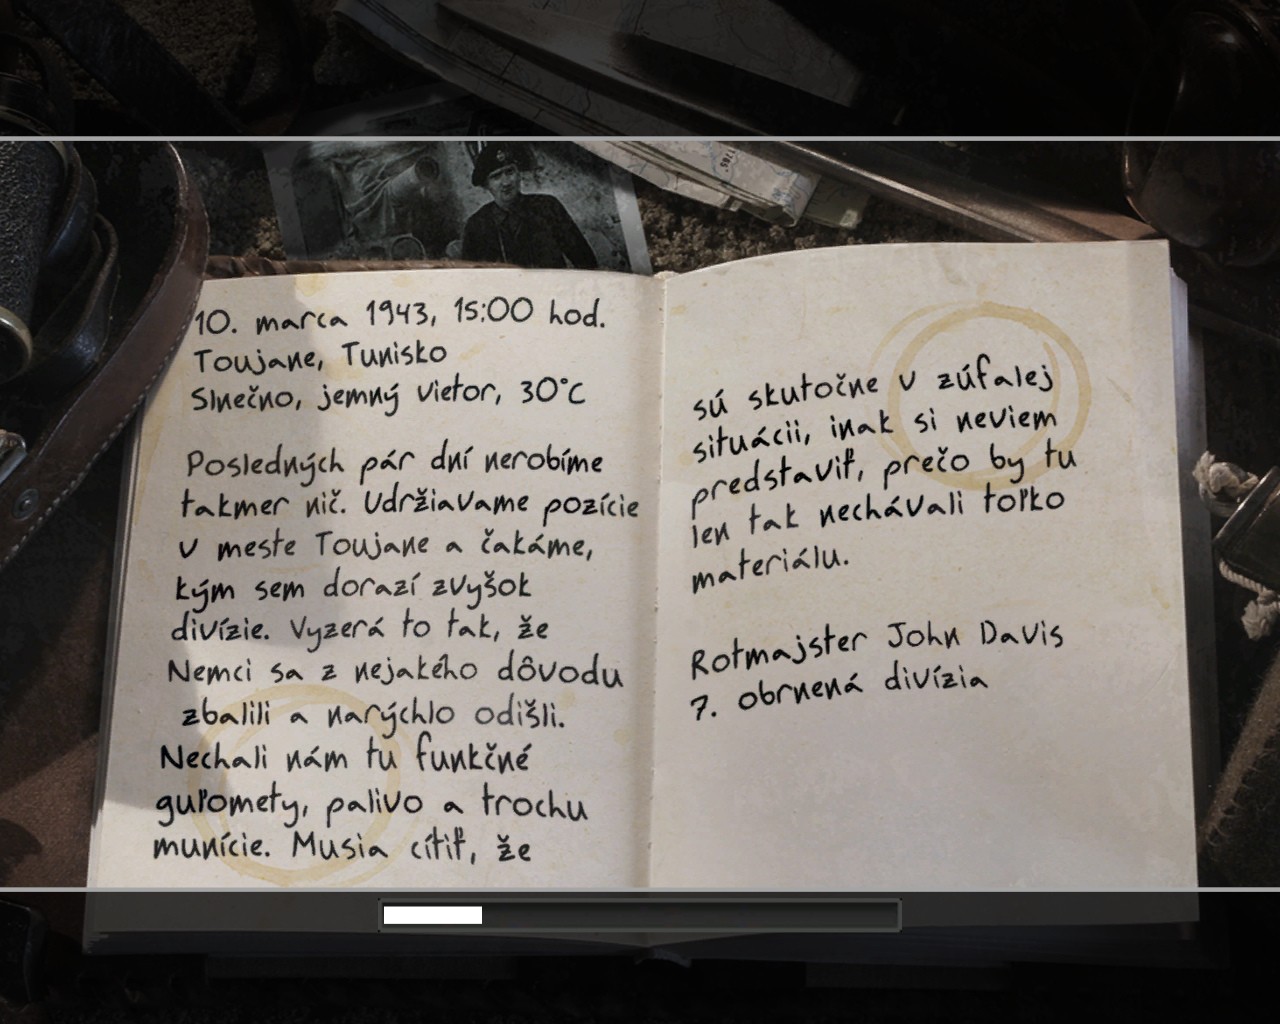 10. marca 1943, 15:00 hod.
Toujane, Tunisko
Slnečno, jemný vietor, 30°C
Posledných pár dní nerobíme
takmer nič. Udržiavame pozície
v meste Toujane a čakáme,
kým sem dorazí zvyšok
divízie. Vyzerá to tak, že
Nemci sa z nejakého dôvodu
zbalili a narýchlo odišli.
Nechali nám tu funkčné
guľomety, palivo a trochu
munície. Musia cítiť, že
sú skutočne v zúfalej
situácii, inak si neviem
predstaviť, prečo by tu
len tak nechávali toľko
materiálu.
Rotmajster John Davis
7. obrnená divízia